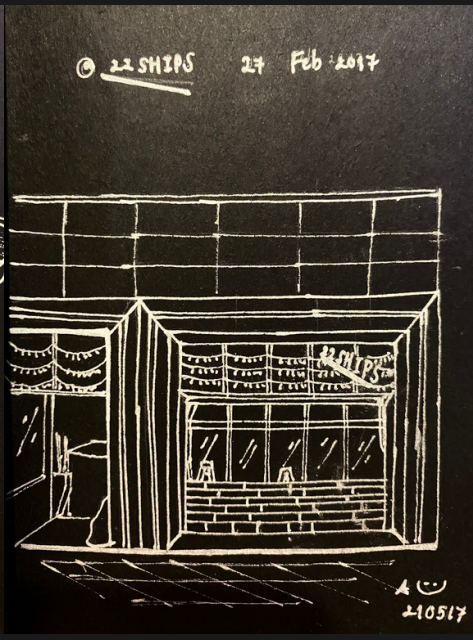 @ 22 SHIPS 27 Feb 2017
22 SHIPS
A
210517